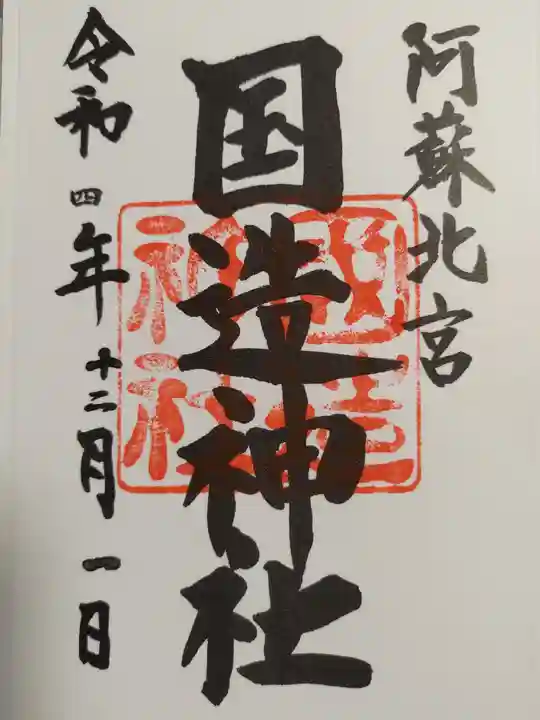 阿蘇北宮
国造神社
國造
神社
令和四年十二月一日